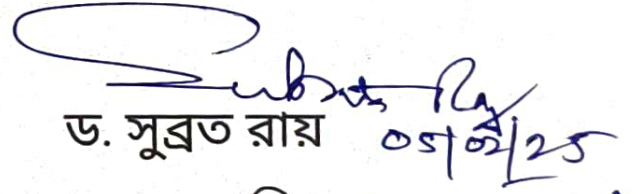 Subrata Ray
ড. সুব্রত রায়
05/02/25